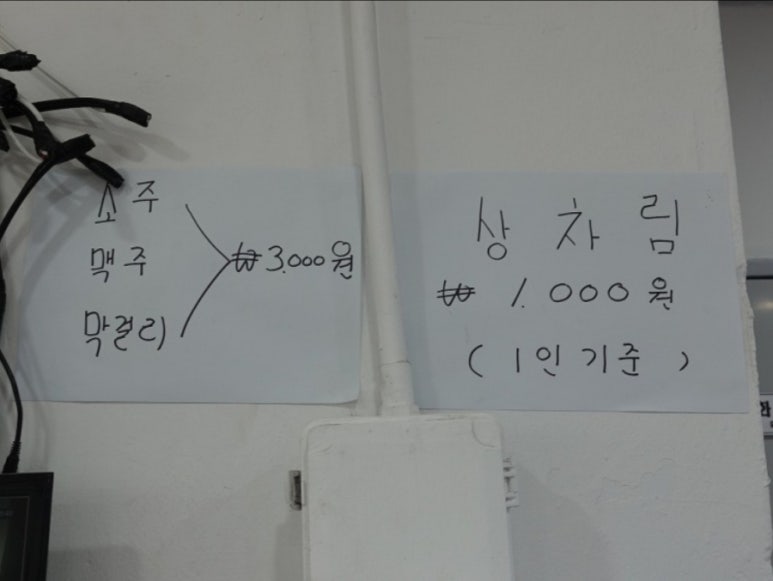 소주
맥주
막걸리
₩3.000원
상차림
₩ 1.000원
(1인기준)